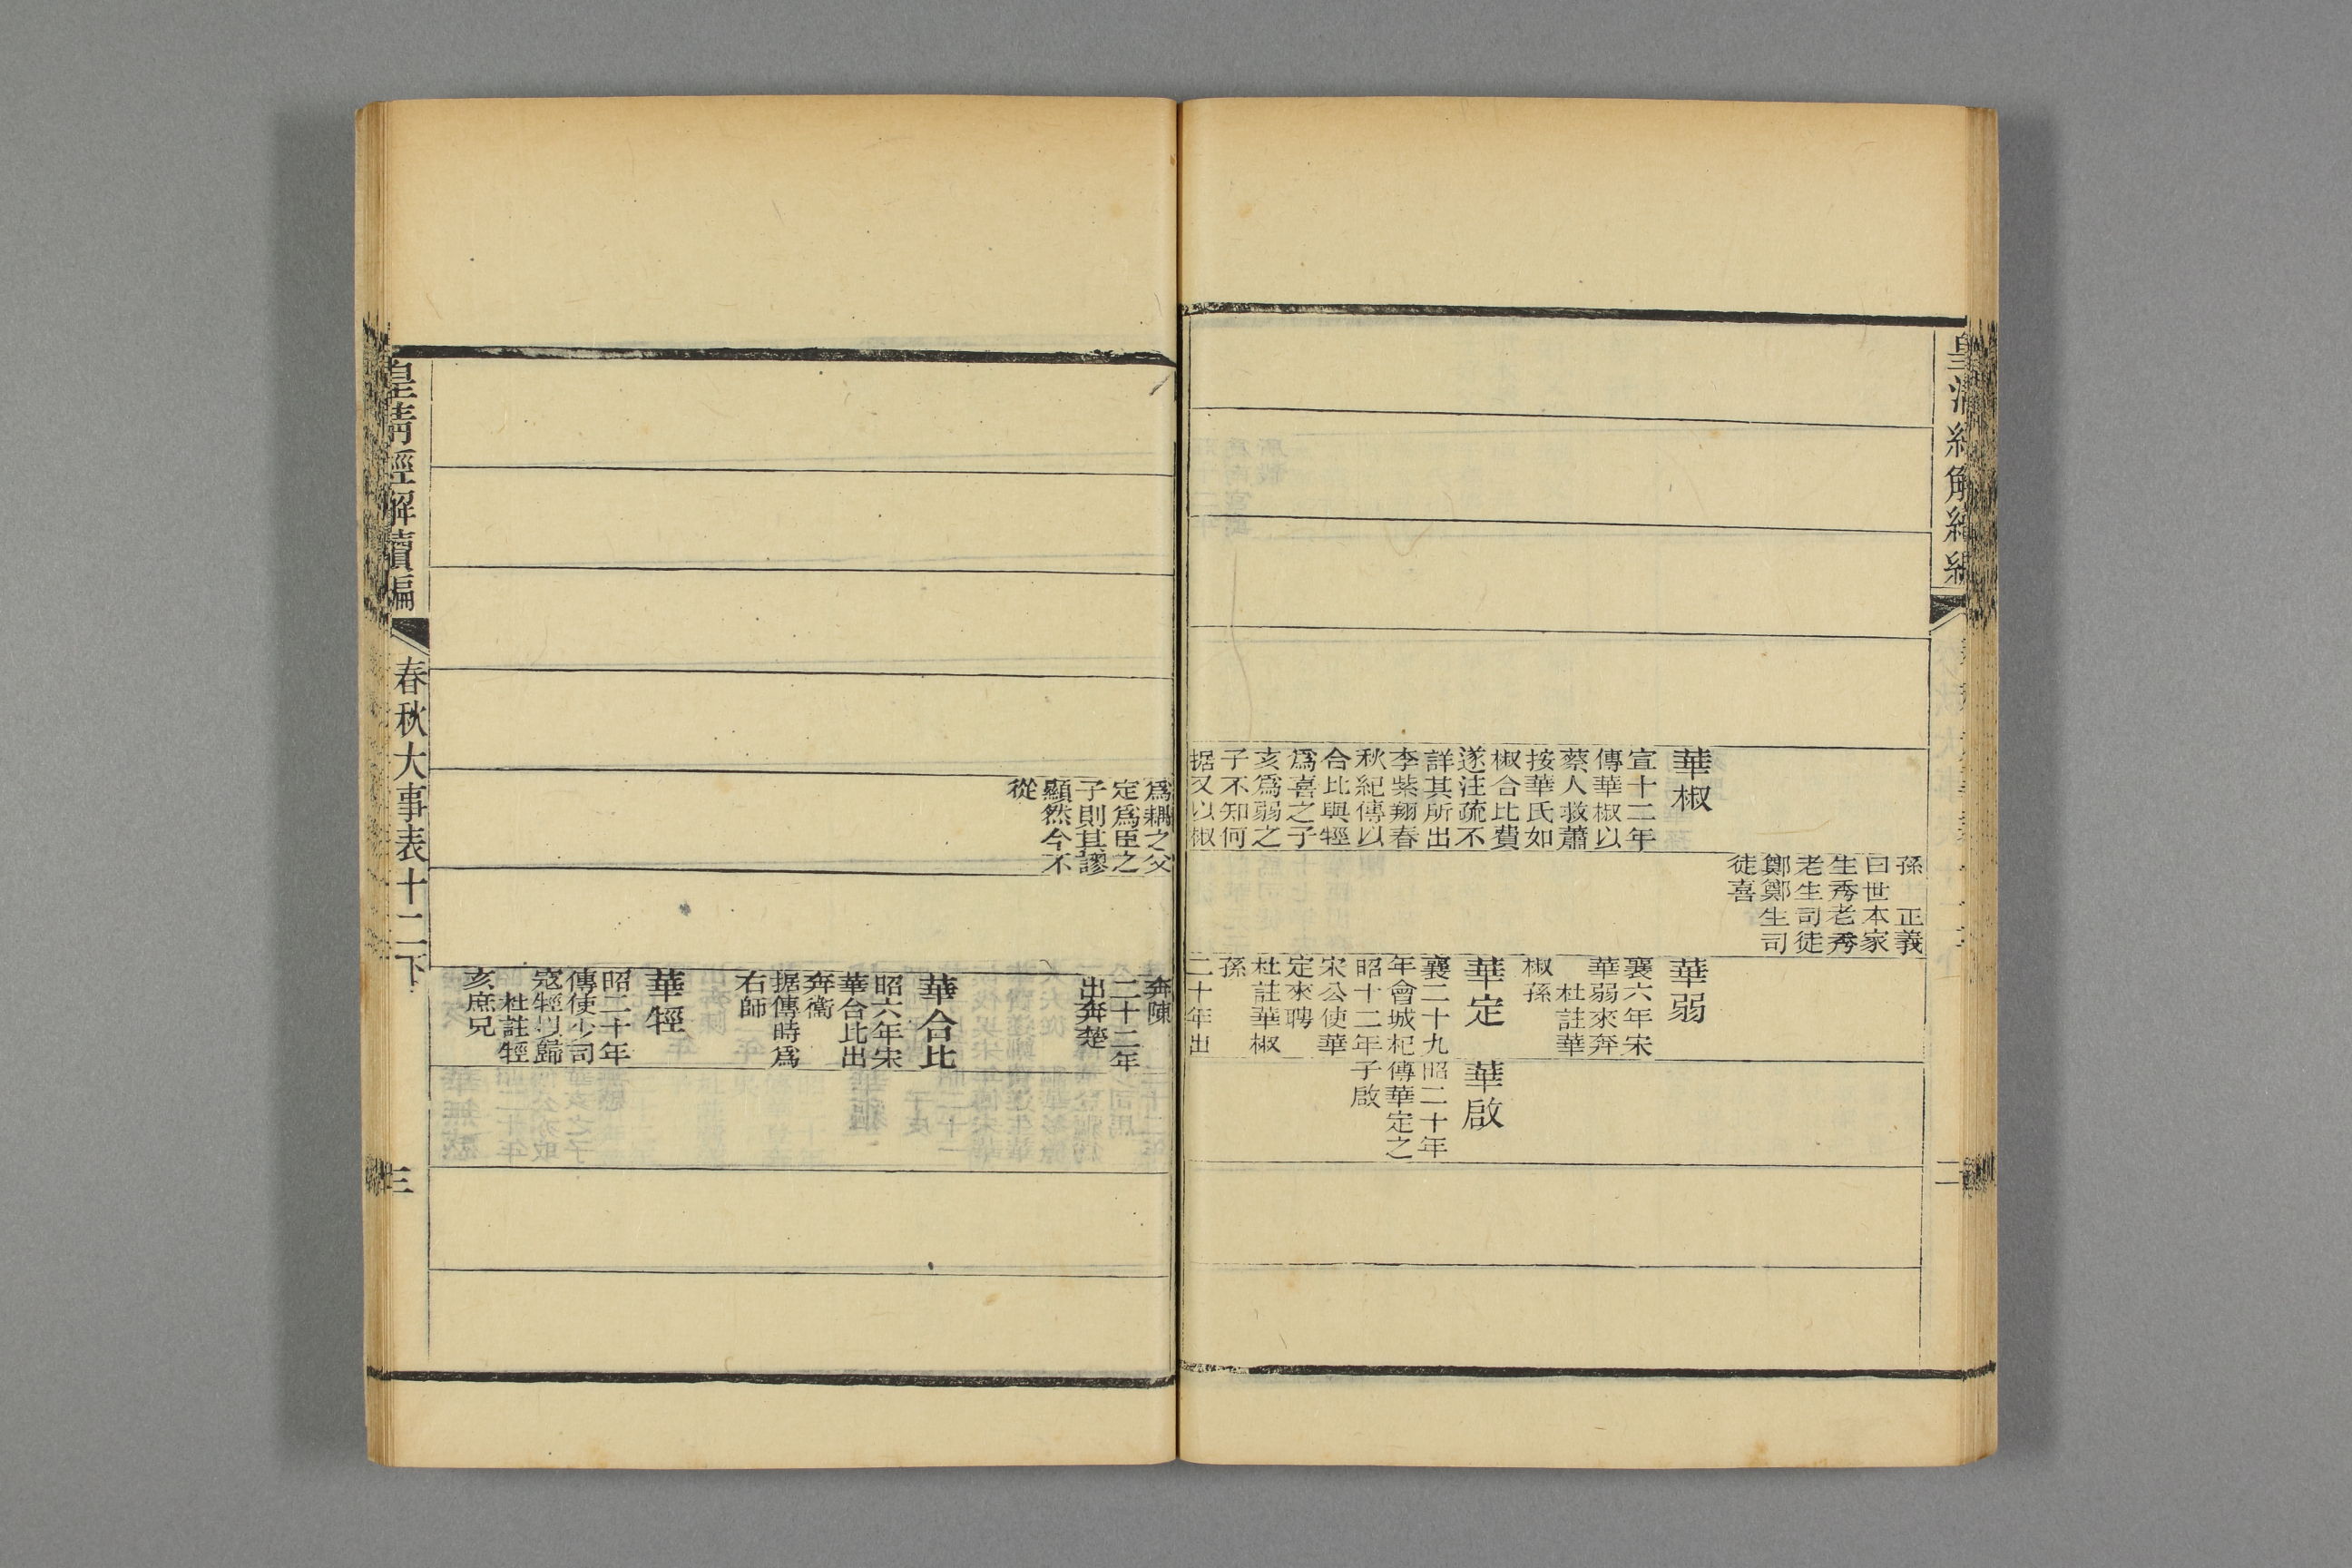 皇清經解續編
孫　正義
曰世本家
生秀老秀
老生司徒
鄭鄭生司
徒喜
華椒
宣十二年
傳華椒以
蔡人救蕭
按華氏如
椒合比費
遂注疏不
詳其所出
李紫翔春
秋紀傳以
合比與牼
爲喜之子
亥爲弱之
子不知何
据又以椒
華弱
襄六年宋
華弱來奔
杜註華
椒孫
華定
襄二十九
年會城杞
昭十二年
宋公使華
定來聘
杜註華椒
孫
二十年出
華啟
昭二十年
傳華定之
子啟
二
爲耦之父
定爲臣之
子則其謬
顯然今不
從
奔陳
二十二年
出奔楚
華合比
昭六年宋
華合比出
奔衞
据傳時爲
右師
華牼
昭二十年
傳使少司
寇牼以歸
杜註牼
亥庶兄
皇清經解續編
春秋大事表十二下
三